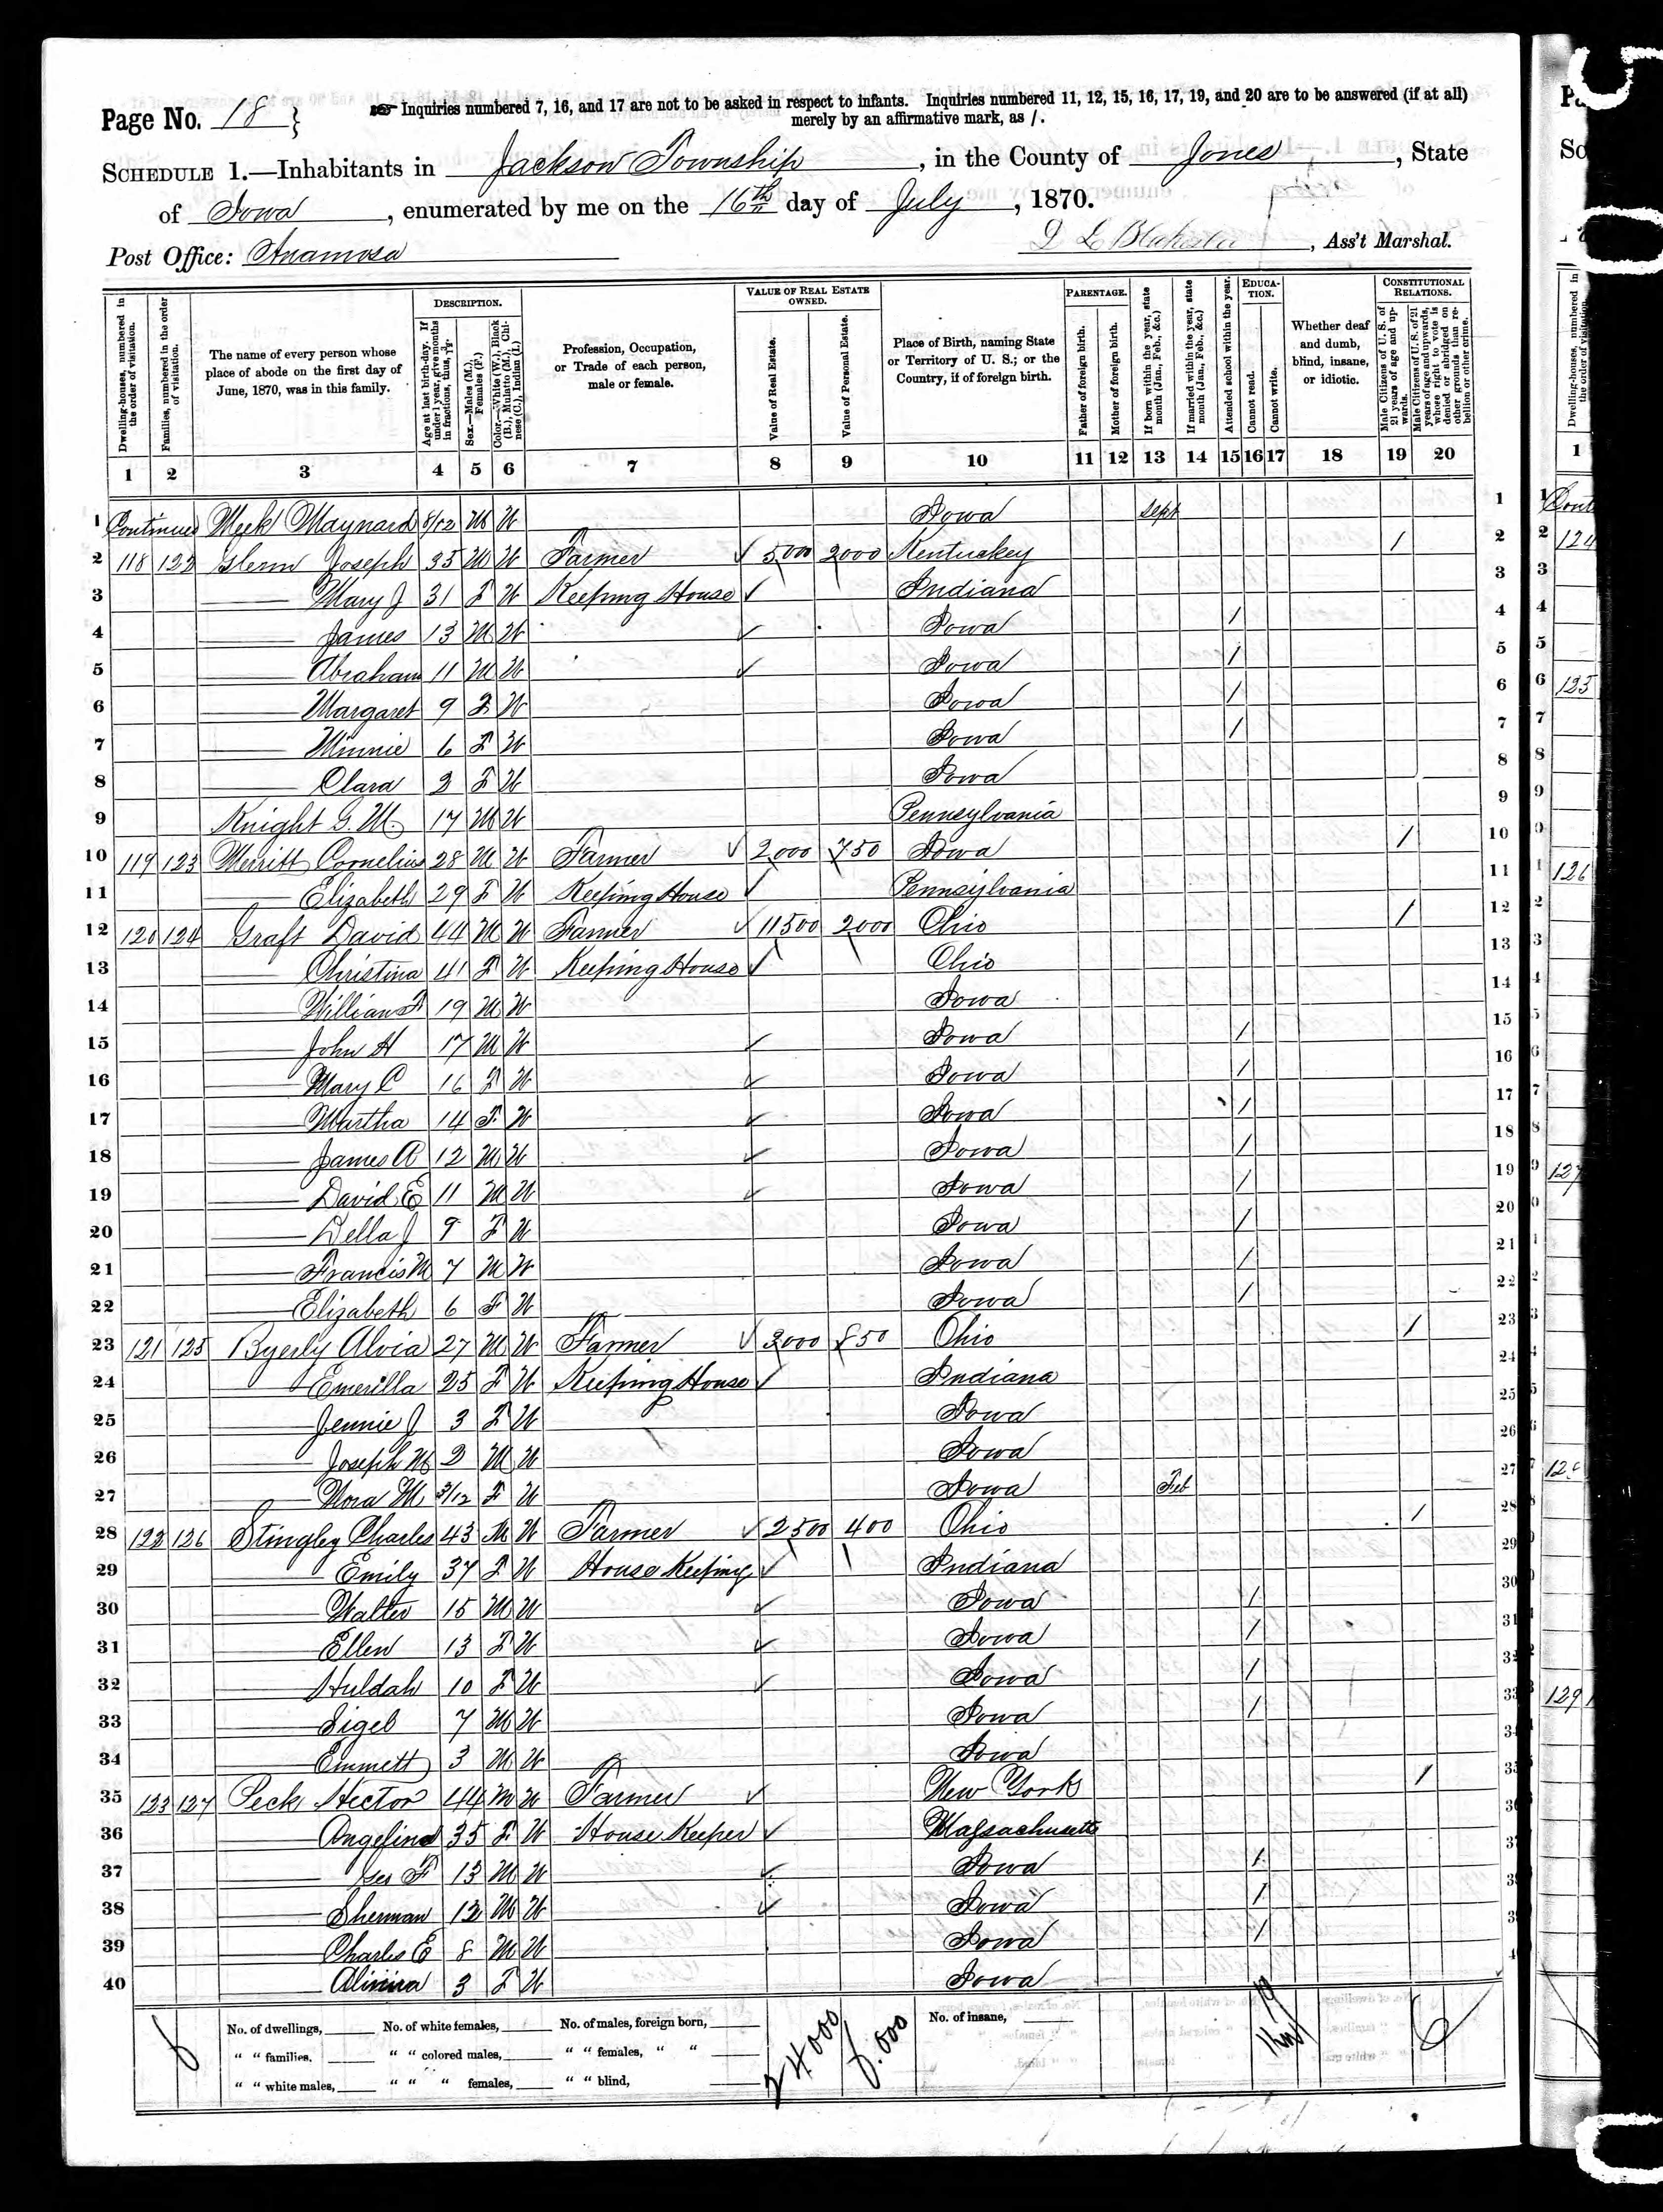 Page No. 18 }
Inquiries numbered 7, 16, and 17 are not to be asked in respect to infants. Inquiries numbered 11, 12, 15, 16, 17, 19, and 20 are to be answered (if at all)
merely by an affirmative mark, as /.
SCHEDULE 1.—Inhabitants in Jackson Township, in the County of Jones, State
of Iowa, enumerated by me on the 16th day of July, 1870.
Post Office: Anamosa
D L, Ass't Marshal.
Dwelling-houses, numbered in the order of visitation.
Families, numbered in the order of visitation.
The name of every person whose place of abode on the first day of June, 1870, was in this family.
DESCRIPTION.
Age at last birth-day. If under 1 year, give months in fractions, thus, 3/12.
Sex.—Males (M.), Females (F.)
Color.—White (W.), Black (B.), Mulatto (M.), Chinese (C.), Indian (I.)
Profession, Occupation, or Trade of each person, male or female.
VALUE OF REAL ESTATE OWNED.
Value of Real Estate.
Value of Personal Estate.
Place of Birth, naming State or Territory of U. S.; or the Country, if of foreign birth.
PARENTAGE.
Father of foreign birth.
Mother of foreign birth.
If born within the year, state month (Jan., Feb., &c.)
If married within the year, state month (Jan., Feb., &c.)
Attended school within the year.
EDUCATION.
Cannot read.
Cannot write.
Whether deaf and dumb, blind, insane, or idiotic.
CONSTITUTIONAL RELATIONS.
Male Citizens of U. S. of 21 years of age and upwards.
Male Citizens of U. S. of 21 years of age and upwards, whose right to vote is denied or abridged on other grounds than rebellion or other crime.
1 2 3 4 5 6 7 8 9 10 11 12 13 14 15 16 17 18 19 20
1 Continued Meek Maynard 8/12 M W Iowa Sept 1
2 118 122 Glenn Joseph 35 M W Farmer ✓ 5000 2000 Kentuckey / 2
3 —— Mary J 31 F W Keeping House ✓ Indiana 3
4 —— James 13 M W ✓ Iowa / 4
5 —— Abraham 11 M W ✓ Iowa / 5
6 —— Margaret 9 F W Iowa / 6
7 —— Minnie 6 F W Iowa / 7
8 —— Clara 2 F W Iowa 8
9 Knight G. M. 17 M W Pennsylvania 9
10 119 123 Merritt Cornelius 28 M W Farmer ✓ 2000 750 Iowa / 10
11 —— Elizabeth 29 F W Keeping House ✓ Pennsylvania 11
12 120 124 Graft David 44 M W Farmer ✓ 11500 2000 Ohio / 12
13 —— Christina 41 F W Keeping House ✓ Ohio 13
14 —— William F 19 M W Iowa 14
15 —— John H 17 M W ✓ Iowa / 15
16 —— Mary C 16 F W ✓ Iowa / 16
17 —— Martha 14 F W ✓ Iowa / 17
18 —— James A 12 M W ✓ Iowa / 18
19 —— David E 11 M W ✓ Iowa / 19
20 —— Della J 9 F W Iowa / 20
21 —— Francis M 7 M W Iowa / 21
22 —— Elizabeth 6 F W Iowa / 22
23 121 125 Byerly Alvia 27 M W Farmer ✓ 3000 850 Ohio / 23
24 —— Emerilla 25 F W Keeping House ✓ Indiana 24
25 —— Jennie J 3 F W Iowa 25
26 —— Joseph M 2 M W Iowa 26
27 —— Nora M 3/12 F W Iowa Feb 27
28 122 126 Stingley Charles 43 M W Farmer ✓ 2500 400 Ohio / 28
29 —— Emily 37 F W House Keeping ✓ Indiana 29
30 —— Walter 15 M W ✓ Iowa / 30
31 —— Ellen 13 F W ✓ Iowa / 31
32 —— Huldah 10 F W ✓ Iowa / 32
33 —— Sigel 7 M W Iowa / 33
34 —— Emmett 3 M W Iowa
35 123 127 Peck Hector 44 M W Farmer ✓ New York /
36 —— Angelina 35 F W House Keeper ✓ Massachusetts
37 —— F 13 M W ✓ Iowa /
38 —— Sherman 12 M W ✓ Iowa /
39 —— Charles E 8 M W Iowa /
40 —— 3 F W Iowa
No. of dwellings, No. of white females, No. of males, foreign born, No. of insane,
" " families, " " colored males, " " females, " "
" " white males, " " " females, " " blind,
6 24000 6.000 19 6